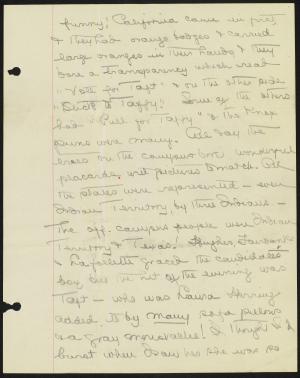 funny! California came in first
& they had orange badges & carried
large oranges in their hands & they
bore a transparency which read
"Vote for Taft" & on the other side
"Stick to Taffy!" Some of the others
had "Pull for Taffy" & the Knox
puns were many. All day the
trees on the campus bore wonderful
placards with pictures to match. All
the states were represented – even
Indian Territory, by three Indians. –
The off-campus people were Indian
Territory & Texas. Hughes, Fairbanks
& Lafollette graced the candidates'
box, but the hit of the evening was
Taft – who was Laura
added to by many sofa pillows
& a gray moustache! I thought I'd
burst when I saw her she was so